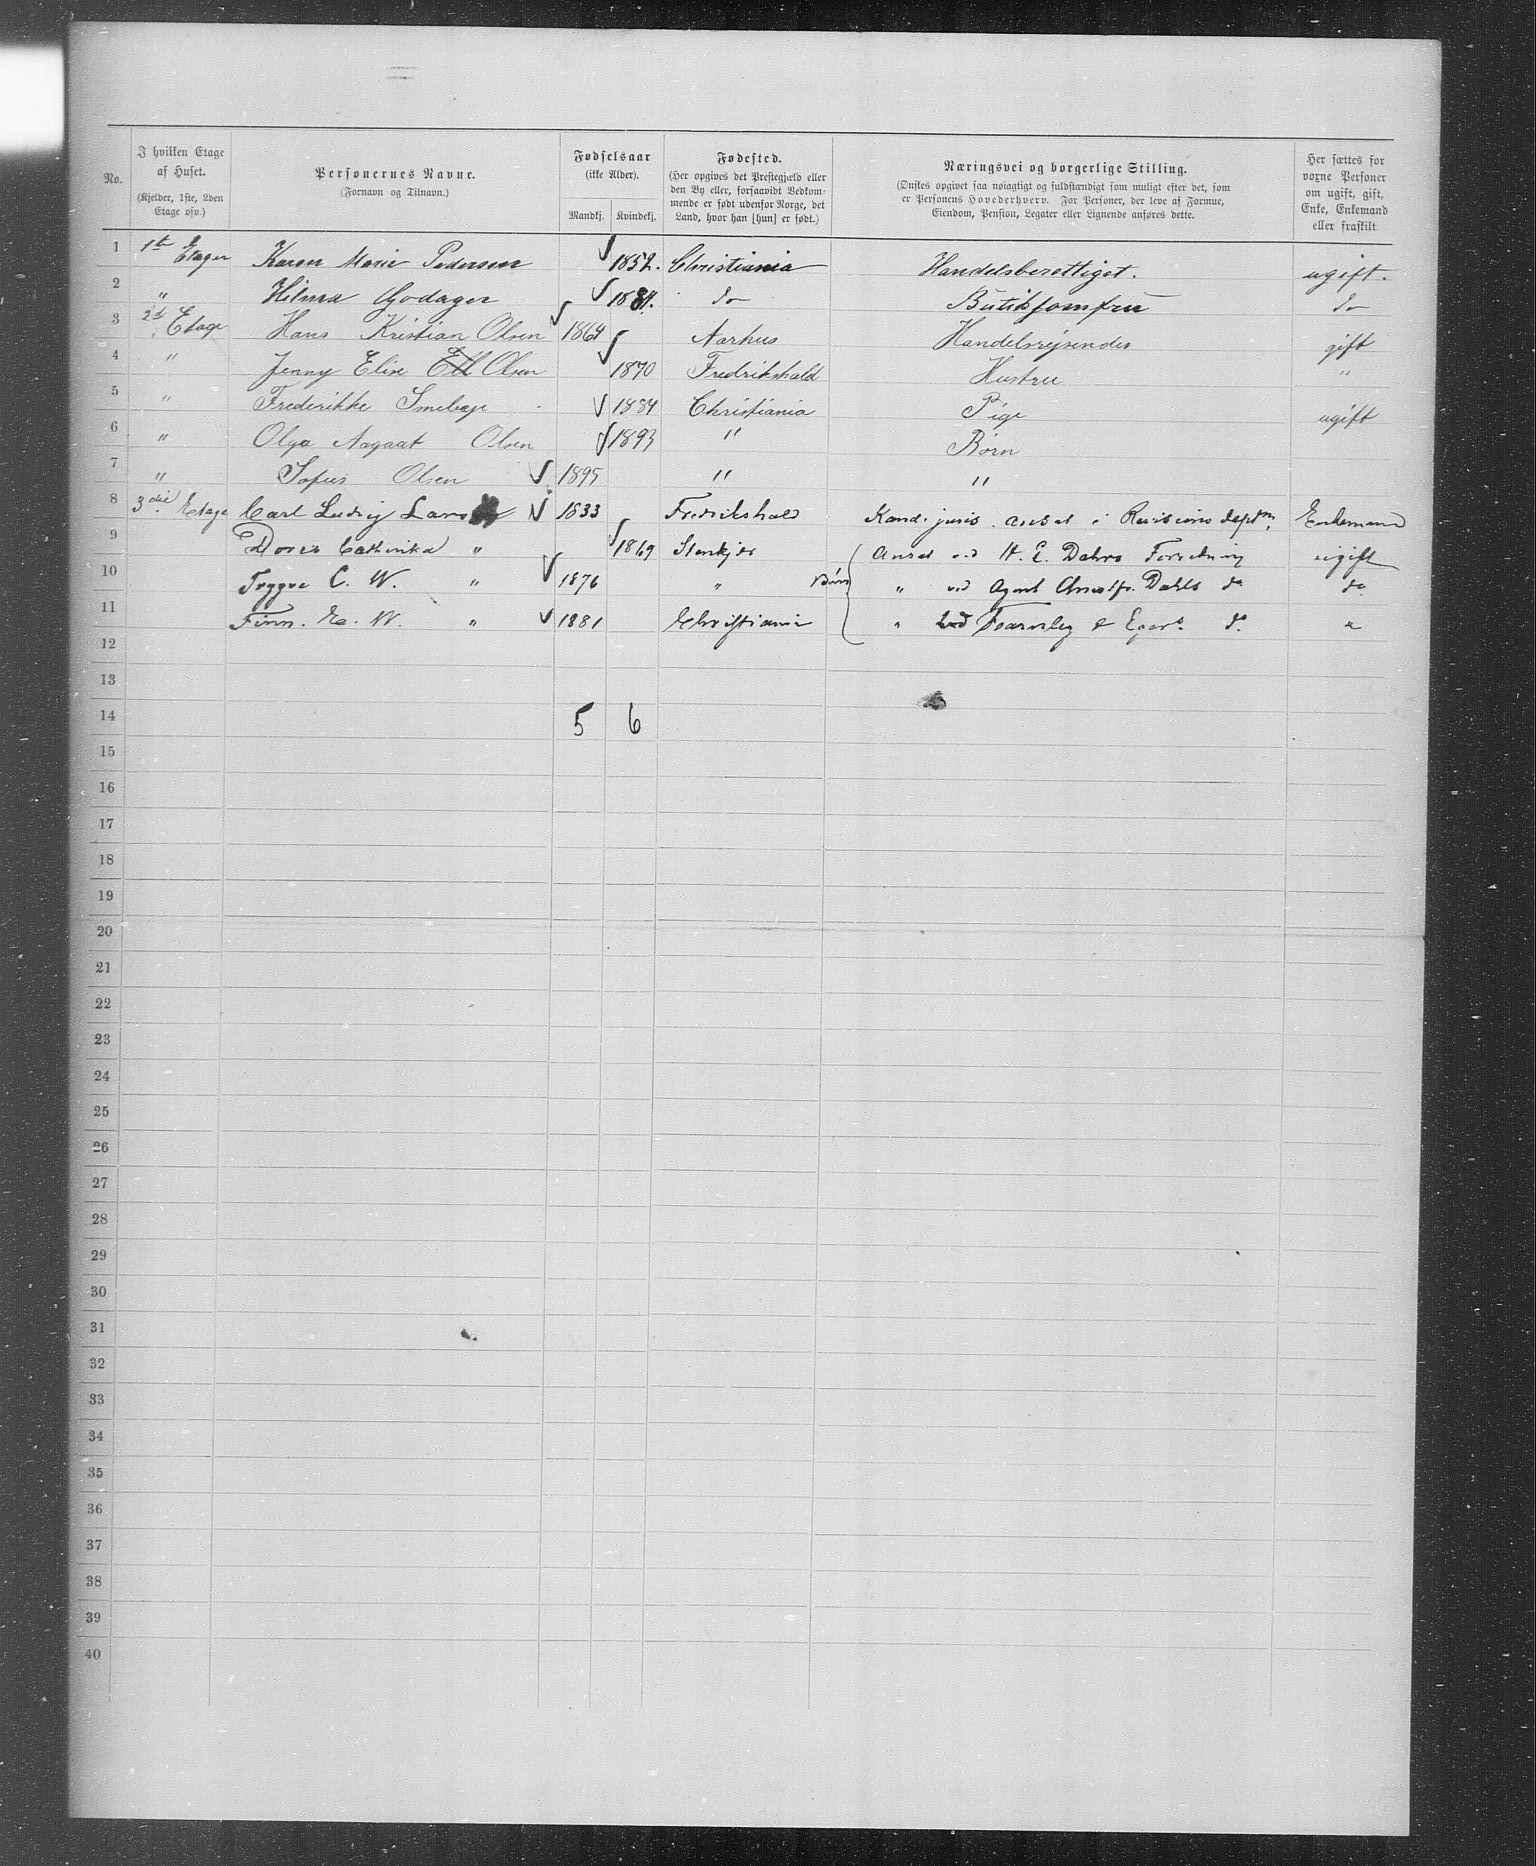 No. | I hvilken Etage af Huset. (Kjelder, 1ste, 2den Etage osv.) | Personernes Navne. (Fornavn og Tilnavn.) | Fødselsaar (ikke Alder). Mandkj. Kvindekj. | Fødested. (Her opgives det Prestegjæld eller den By eller, forsaavidt Vedkommende er født udenfor Norge, det Land, hvor han [hun] er født.) | Næringsvei og borgerlige Stilling. (Ønskes opgivet saa nøiagtigt og fuldstændigt som muligt efter det, som er Personens Hovederhverv. For Personer, der leve af Formue, Eiendom, Pension, Legater eller Lignende anføres dette. | Her sættes for voxne Personer om ugift, gift, Enke, Enkemand eller fraskilt
1 1ste Etager Karen Marie Pedersen 1852. Christiania Handelsberettiget. ugift.
2 " Hilma Godager 188. do Butiksjomfru do
3 2d Etage Hans Kristian Olsen 1864 Aarhus Handelsreisende gift
4 " Jenny Elise Olsen 1870 Fredrikshald Hustru "
5 " Frederikke 1884 Christiania Pige ugift
6 " Olga Aagaat Olsen 1893 " Børn
7 " Sofus Olsen 1895 " "
8 3die Etage Carl Ludvig Larsen 1833 Fredrikshald Kand. juris. ansat i Revisions deptm. Enkemand
9 Cathinka " 1869 Stenkjær Ansat ved H. E. Forretning ugift
10 Trygve C. W. " 1876 " Børn " ved Agent Dahls do do
11 Finn. E. W. " 1881 Christiania " ved Fearnley & Egers do "
12
13
14 5 6
15
16
17
18
19
20
21
22
23
24
25
26
27
28
29
30
31
32
33
34
35
36
37
38
39
40